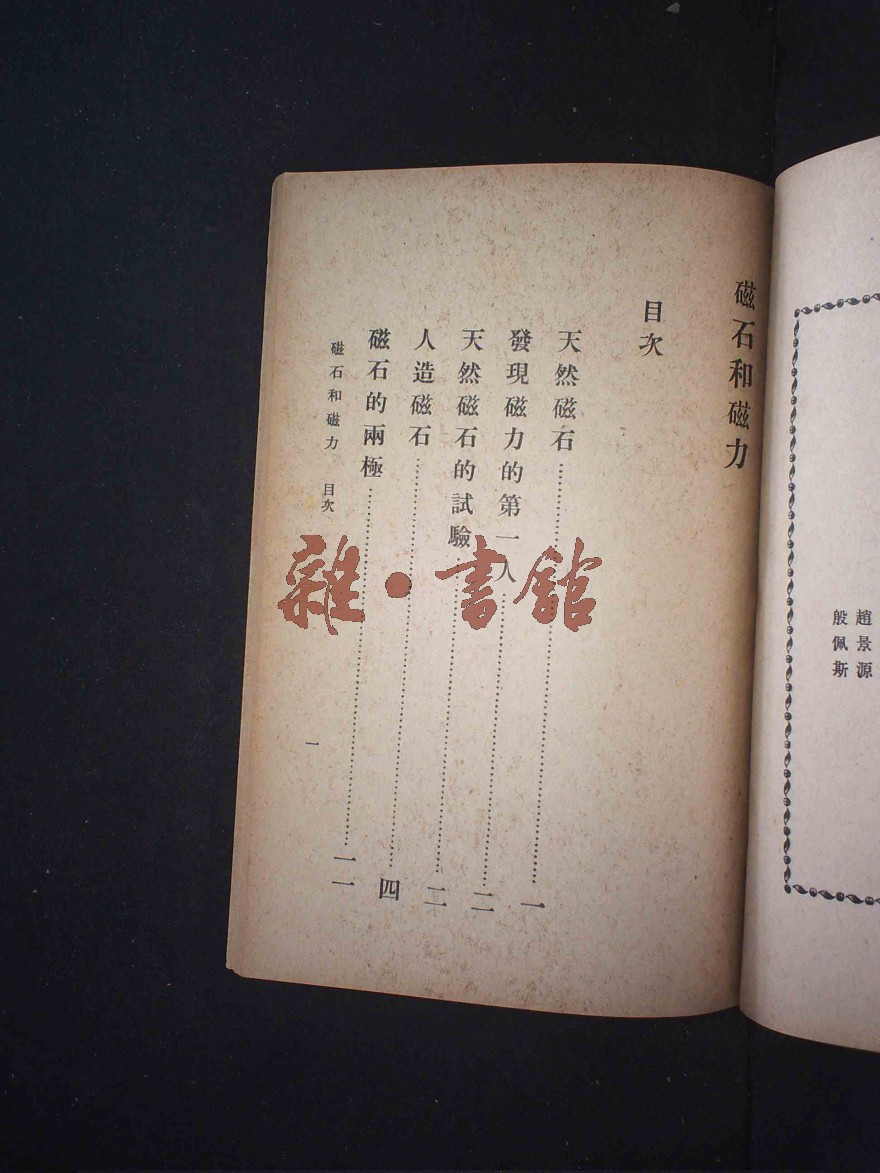 趙景源
殷佩斯
磁石和磁力
目次
天然磁石……一
發現磁力的第一人……二
天然磁石的試驗……二
人造磁石……四
磁石的兩極……一一
磁石和磁力 目次
一
雜·書館